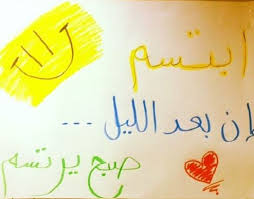 ابتسم
إن بعد الليل ...
صبح يرتسم